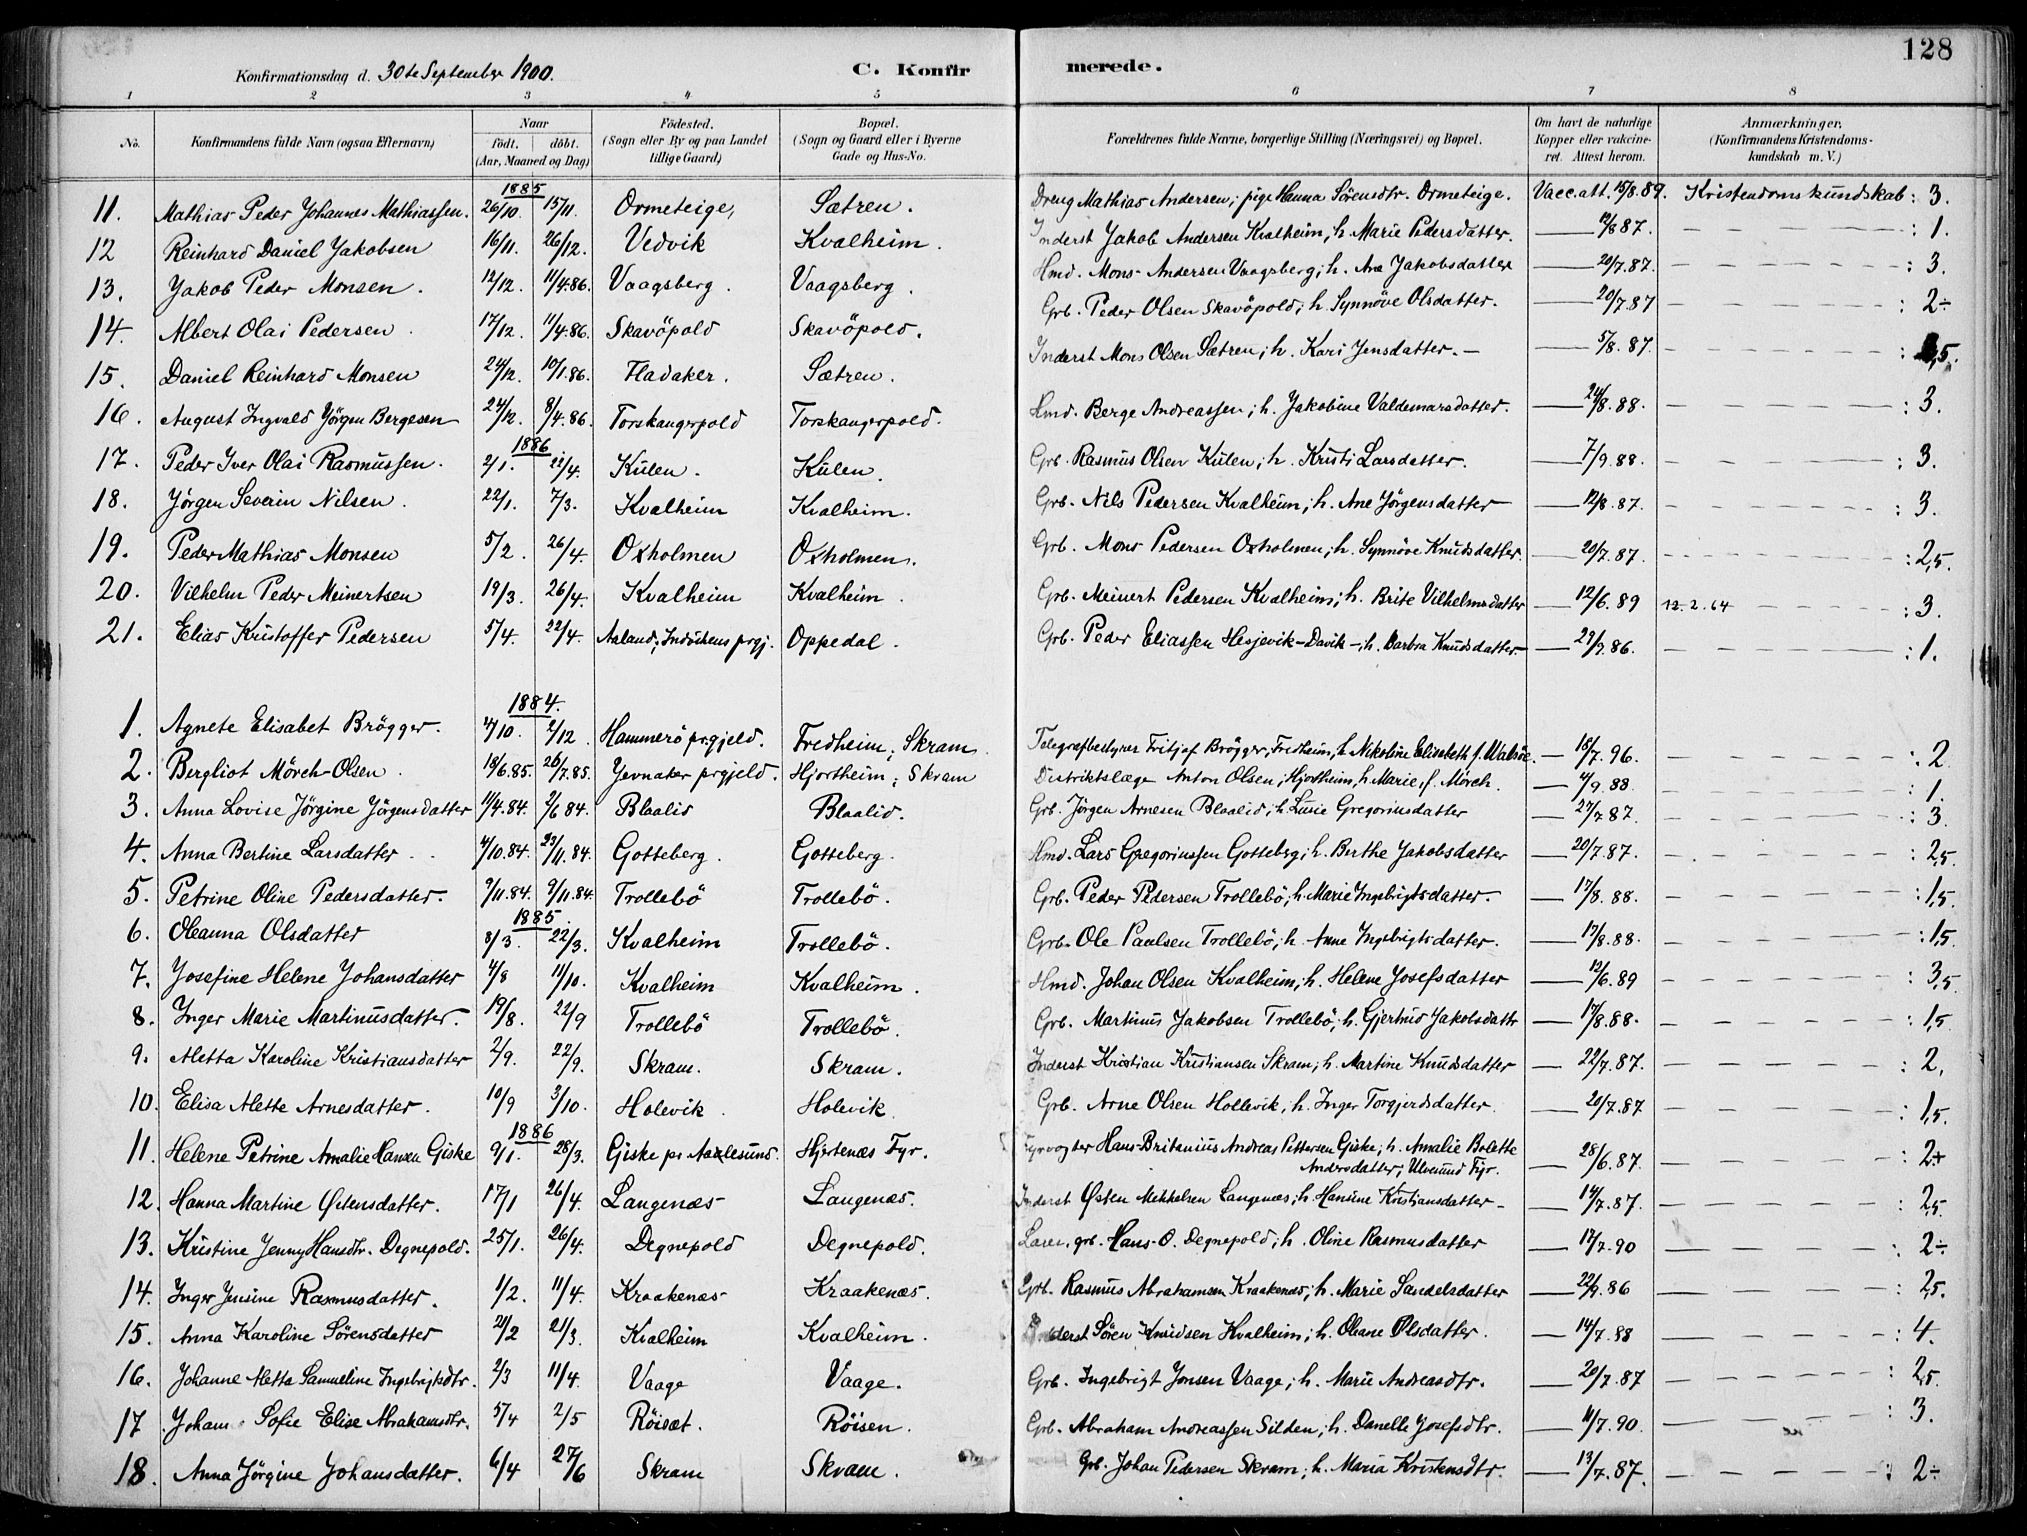 128
Konfirmationsdag d. 30te September 1900. C. Konfirmerede.
1 2 3 4 5 6 7 8
No. Konfirmandens fulde Navn (ogsaa Efternavn) Naar født. døbt. (Aar, Maaned og Dag) Fødested. (Sogn eller By og paa Landet tillige Gaard) Bopæl. (Sogn og Gaard eller i Byerne Gade og Hus-No. Forældrenes fulde Navne, borgerlige Stilling (Næringsvei) og Bopæl. Om havt de naturlige Kopper eller vakcineret. Attest herom. Anmærkninger, (Konfirmandens Kristendomskundskab m. V.)
1885
11. Mathias Peder Johannes Mathiassen. 26/10. 15/11. Ormeteige, Sætren. Dreng Mathias Andersen; pige Hanna Sörensdtr. Ormeteige. Vacc. att. 15/8.89. Kristendomskundskab: 3.
12 Reinhard Daniel Jakobsen 16/11. 26/12. Vedvik Kvalheim. Inderst Jakob Andersen Kvalheim, h. Marie Pedersdatter. — 12/8 87. : 1.
13. Jakob Peder Monsen. 12/12. 11/4.86. Vaagsberg. Vaagsberg. Hmd. Mons Andersen Vaagsberg; h. Ane Jakobsdatter — 20/7.87. : 3.
14. Albert Olai Pedersen 17/12. 11/4.86. Skavöpold Skavöpold. Grb. Peder Olsen Skavöpold; h. Synnöve Olsdatter. — 20/7.87 : 2÷
15. Daniel Reinhard Monsen 24/12. 10/1.86. Fladaker. Sætren. Inderst Mons Olsen Sætren; h. Kari Jensdatter. — 5/8.87. : ,5.
16. August Ingvald Jörgen Bergesen 24/12. 8/4.86. Torskangerpold Torskangerpold. Hmd. Berge Andreassen; h. Jakobine Valdemarsdatter. — 24/8.88. : 3.
1886
17. Peder Iver Olai Rasmussen. 2/1. 22/4. Kulen. Kulen. Grb. Rasmus Olsen Kulen; h. Kristi Larsdatter. — 7/9.88. : 3.
18. Jörgen Severin Nilsen. 22/1. 7/3. Kvalheim Kvalheim. Grb. Nils Pedersen Kvalheim; h. Ane Jörgensdatter — 12/8.87. : 3.
19. Peder Mathias Monsen 5/2. 26/4. Oxholmen Oxholmen. Grb. Mons Pedersen Oxholmen; h. Synnöve Knudsdatter. — 20/7.87. : 2,5.
20. Vilhelm Peder Meinertsen 19/3. 26/4. Kvalheim Kvalheim. Grb. Meinert Pedersen Kvalheim; h. Brite Vilhelmsdatter — 12/6.89 12.2.64 : 3.
21. Elias Kristoffer Pedersen 5/4. 22/4. Aaland; Indvikens prgj. Oppedal. Grb. Peder Eliassen Hesjevik-Davik-; h. Barbra Knudsdatter. — 29/9.86. : 1.
1884.
1. Agnete Elisabet Brögger. /10. 2/12 Hammerö prgjeld. Fredheim; Skram. Telegrafbestyrer Fritjof Brögger, Fredheim, h. Nikoline Elisabeth f. — 18/7.96. : 2
2. Bergliot Mörch-Olsen. 18/6.85. 26/7.85. Jevnaker prgjeld. Hjortheim; Skram Distriktslæge Anton Olsen, Hjortheim, h. Marie, f. Mörch. — 4/9.88. : 1.
3. Anna Lovise Jörgine Jörgensdatter 11/4.84. 2/6 84. Blaalid Blaalid. Grb. Jörgen Arnesen Blaalid; h. Lusie Gregoriusdatter — 27/7 87. : 3
4. Anna Bertine Larsdatter. 4/10.84. 23/11.84. Gotteberg. Gotteberg. Hmd. Lars Gregoriussen Gotteberg; h. Berthe Jakobsdatter — 20/7.87. : 2,5.
5. Petrine Oline Pedersdatter. 9/11.84. 9/11.84. Trollebö Trollebö. Grb. Peder Pedersen Trollebö; h. Marie Ingebrigtsdatter. — 17/8.88. : 1,5.
1885.
6. Oleanna Olsdatter 8/3. 22/3. Kvalheim Trollebö. Grb. Ole Paulsen Trollebö; h. Anne Ingebrigtsdatter. — 17/8.88. : 1,5.
7. Josefine Helene Johansdatter 4/8 11/10. Kvalheim Kvalheim. Hmd. Johan Olsen Kvalheim, h. Helene Josefsdatter — 12/6.89 : 3,5.
8. Inger Marie Martinusdatter. 19/8. 22/9 Trollebö Trollebö. Grb. Martinus Jakobsen Trollebö; h. Gjertrud Jakobsdattr — 17/8.88. : 1,5
9. Aletta Karoline Kristiansdatter 2/9. 22/9. Skram. Skram. Inderst Kristian Kristiansen Skram; h. Martine Knudsdatter — 22/7.87. : 2.
10. Elisa Alette Arnesdatter. 10/9 3/10. Holevik Holevik. Grb. Arne Olsen Hollevik, h. Inger Torgjerdsdatter. — 20/7.87 : 1,5.
1886
11. Helene Petrine Amalie Hansen Giske 9/1. 28/3. Giske pr Aalesund. Hjertenæs Fyr. Fyrvogter Hans Britanius Andreas Pettersen Giske; h. Amalie Bolette — 28/6.87. : 2+
Andersdatter; Ulvesund Fyr.
12. Hanna Martine Østensdatter. 17/1 26/4. Langenæs Langenæs. Inderst Østen Mekkelsen Langenæs; h. Hansine Kristiansdatter — 14/7.87. : 2,5.
13. Kristine Jenny Hansdtr. Degnepold. 25/1. 26/4. Degnepold Degnepold. Lærer, grb. Hans O. Degnepold; h. Oline Rasmusdatter — 17/7.90 : 2÷
14. Inger Jensine Rasmusdatter. 1/2. 11/4. Kraakenæs Kraakenæs. Grb. Rasmus Abrahamsen Kraakenæs; h. Marie Sandelsdatter — 22/9.86 : 2,5.
15. Anna Karoline Sörensdatter 2/2 21/3. Kvalheim Kvalheim. Inderst Sören Knudsen Kvalheim; h. Oleane Olsdatter. — 14/7.88 : 4.
16. Johanne Aletta Samueline Ingebrigtsdtr. 2/3 11/4. Vaage Vaage. Grb. Ingebrigt Jonsen Vaage; h. Marie Andreasdtr. — 20/7.87 : 2,5.
17 Johan Sofie Elise Abrahamsdtr. 5/4 2/5 Röisæt. Röisen. Grb. Abraham Andreassen Silden; h. Danelle Josefsdtr. — 11/7.90. : 3.
18. Anna Jörgine Johansdatter. 6/4 27/6 Skram Skram. Grb. Johan Pedersen Skram; h. Maria Kristensdtr. — 13/7.87. : 2÷